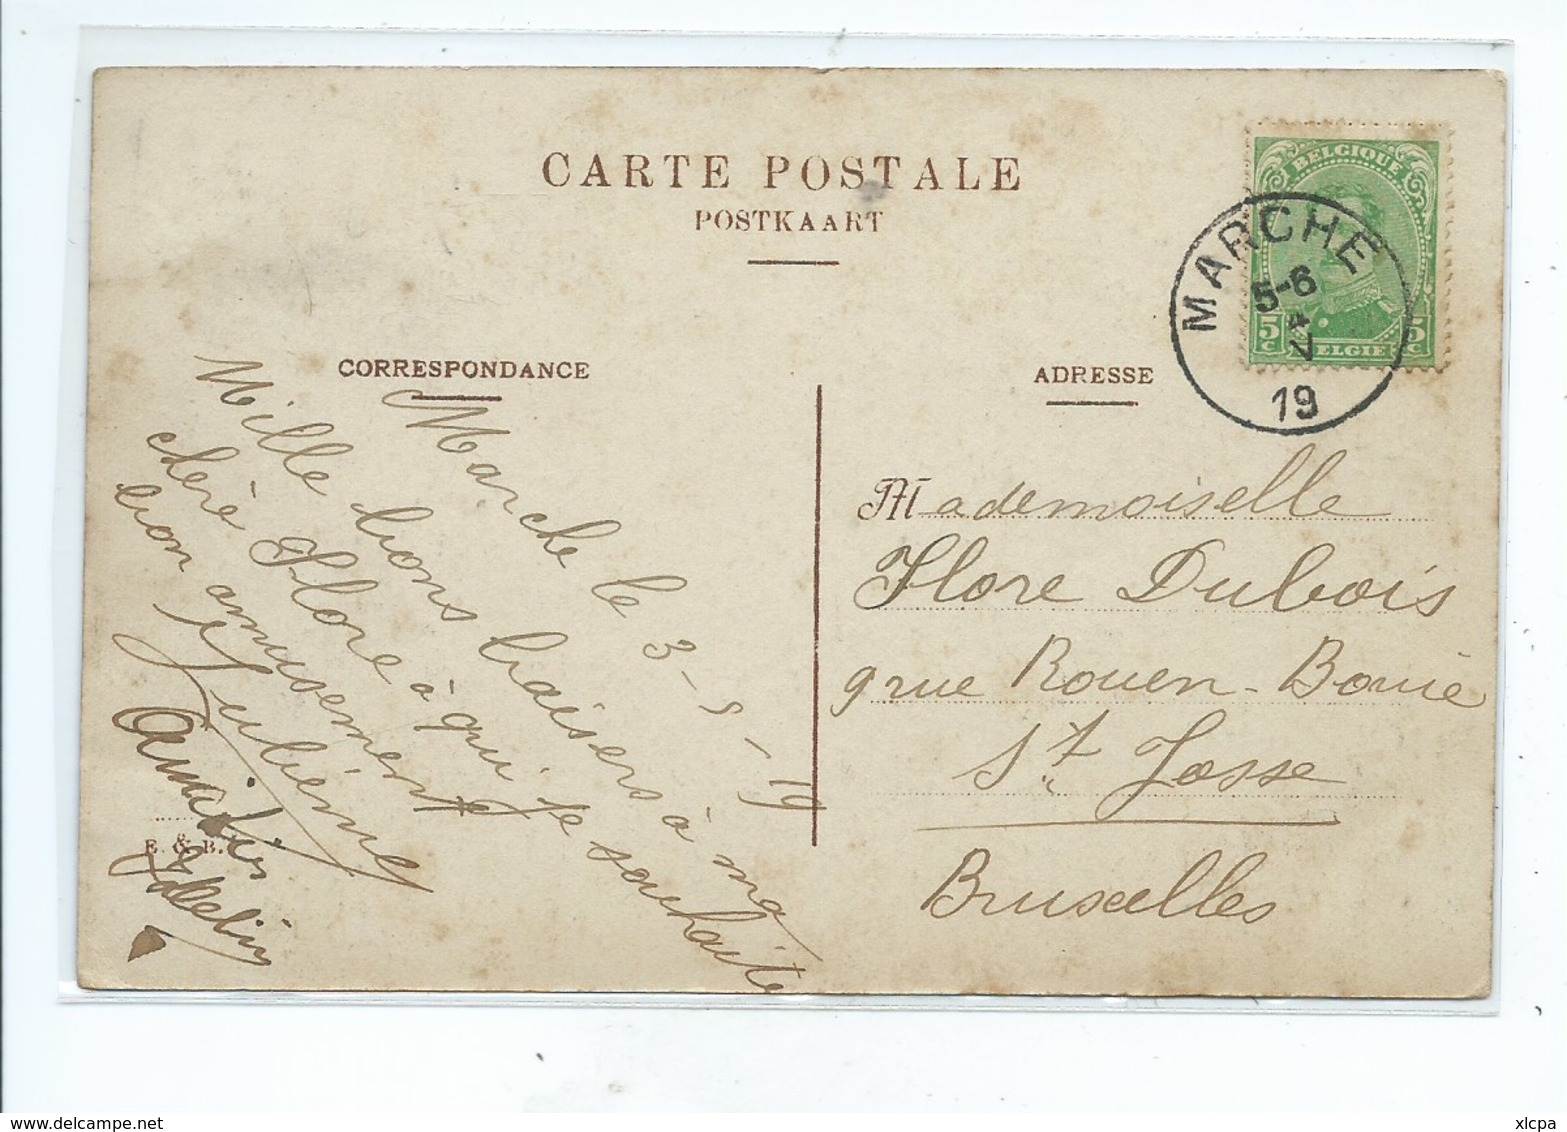 CARTE POSTALE
POSTKAART
CORRESPONDANCE
ADRESSE
BELGIQUE
5c
5c
BELGIË
MARCHE
5-6
4
V
19
Marche le 3-5-19
Mille bons baisers à ma
chère Flore à qui je souhaite
bon amusement
Juliènne
E. & B.
Mademoiselle
Flore Dubois
9 rue Rouen-Bovie
St Josse
Bruxelles
www.delcampe.net
xlcpa